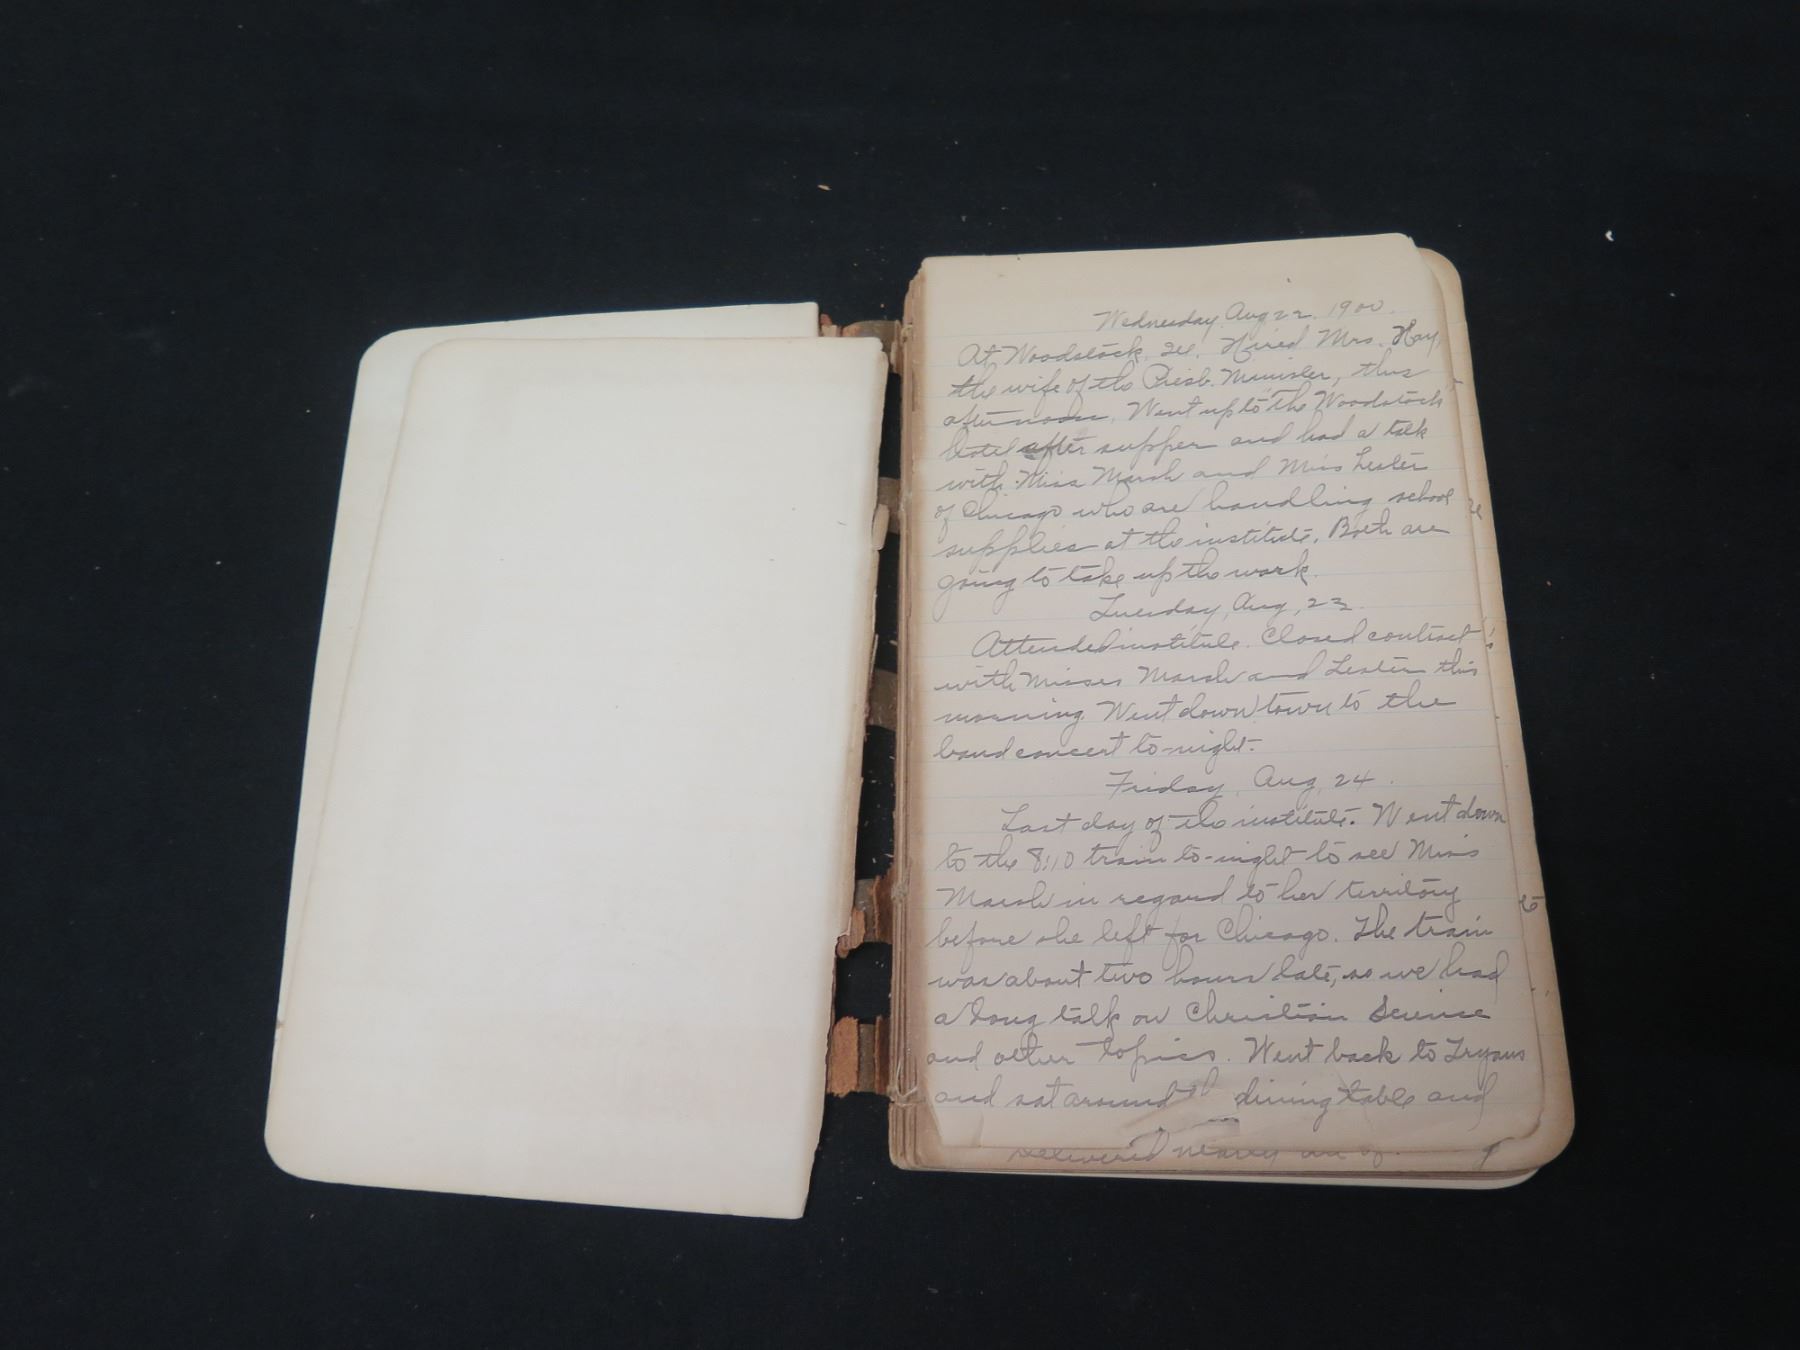 Wednesday, Aug 22, 1900.
At Woodstock, Ill. Hired Mrs. Hay,
the wife of the Presb. Minister, this
afternoon. Went up to the Woodstock
hotel after supper and had a talk
with Miss Marsh and Miss Lester
of Chicago who are handling school
supplies at the institute. Both are
going to take up the work.
Tuesday, Aug, 23.
Attended institute. Closed contract
with Misses Marsh and Lester this
morning. Went down town to the
band concert to-night.
Friday, Aug, 24.
Last day of the institute. Went down
to the 8:10 train to-night to see Miss
Marsh in regard to her territory
before she left for Chicago. The train
was about two hours late, so we had
a long talk on Christian Science
and other topics. Went back to
and sat around dining table and
delivered nearly all of